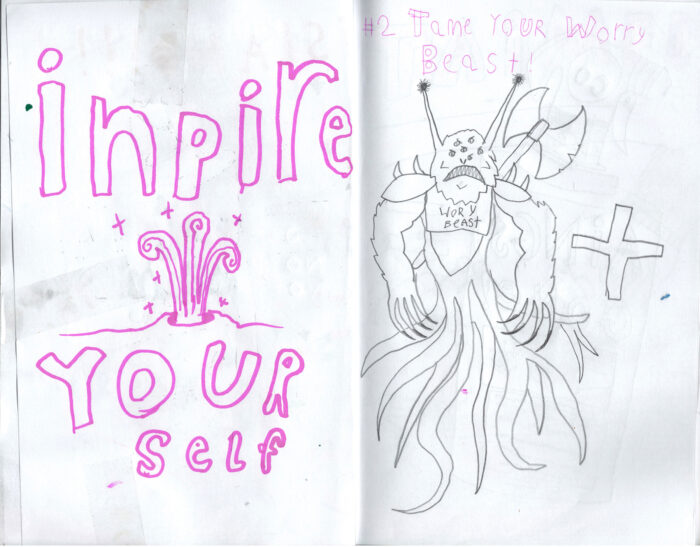 inpire
YOUR
self
#2 Tame YOUR Worry
Beast!
WORY
BEAST